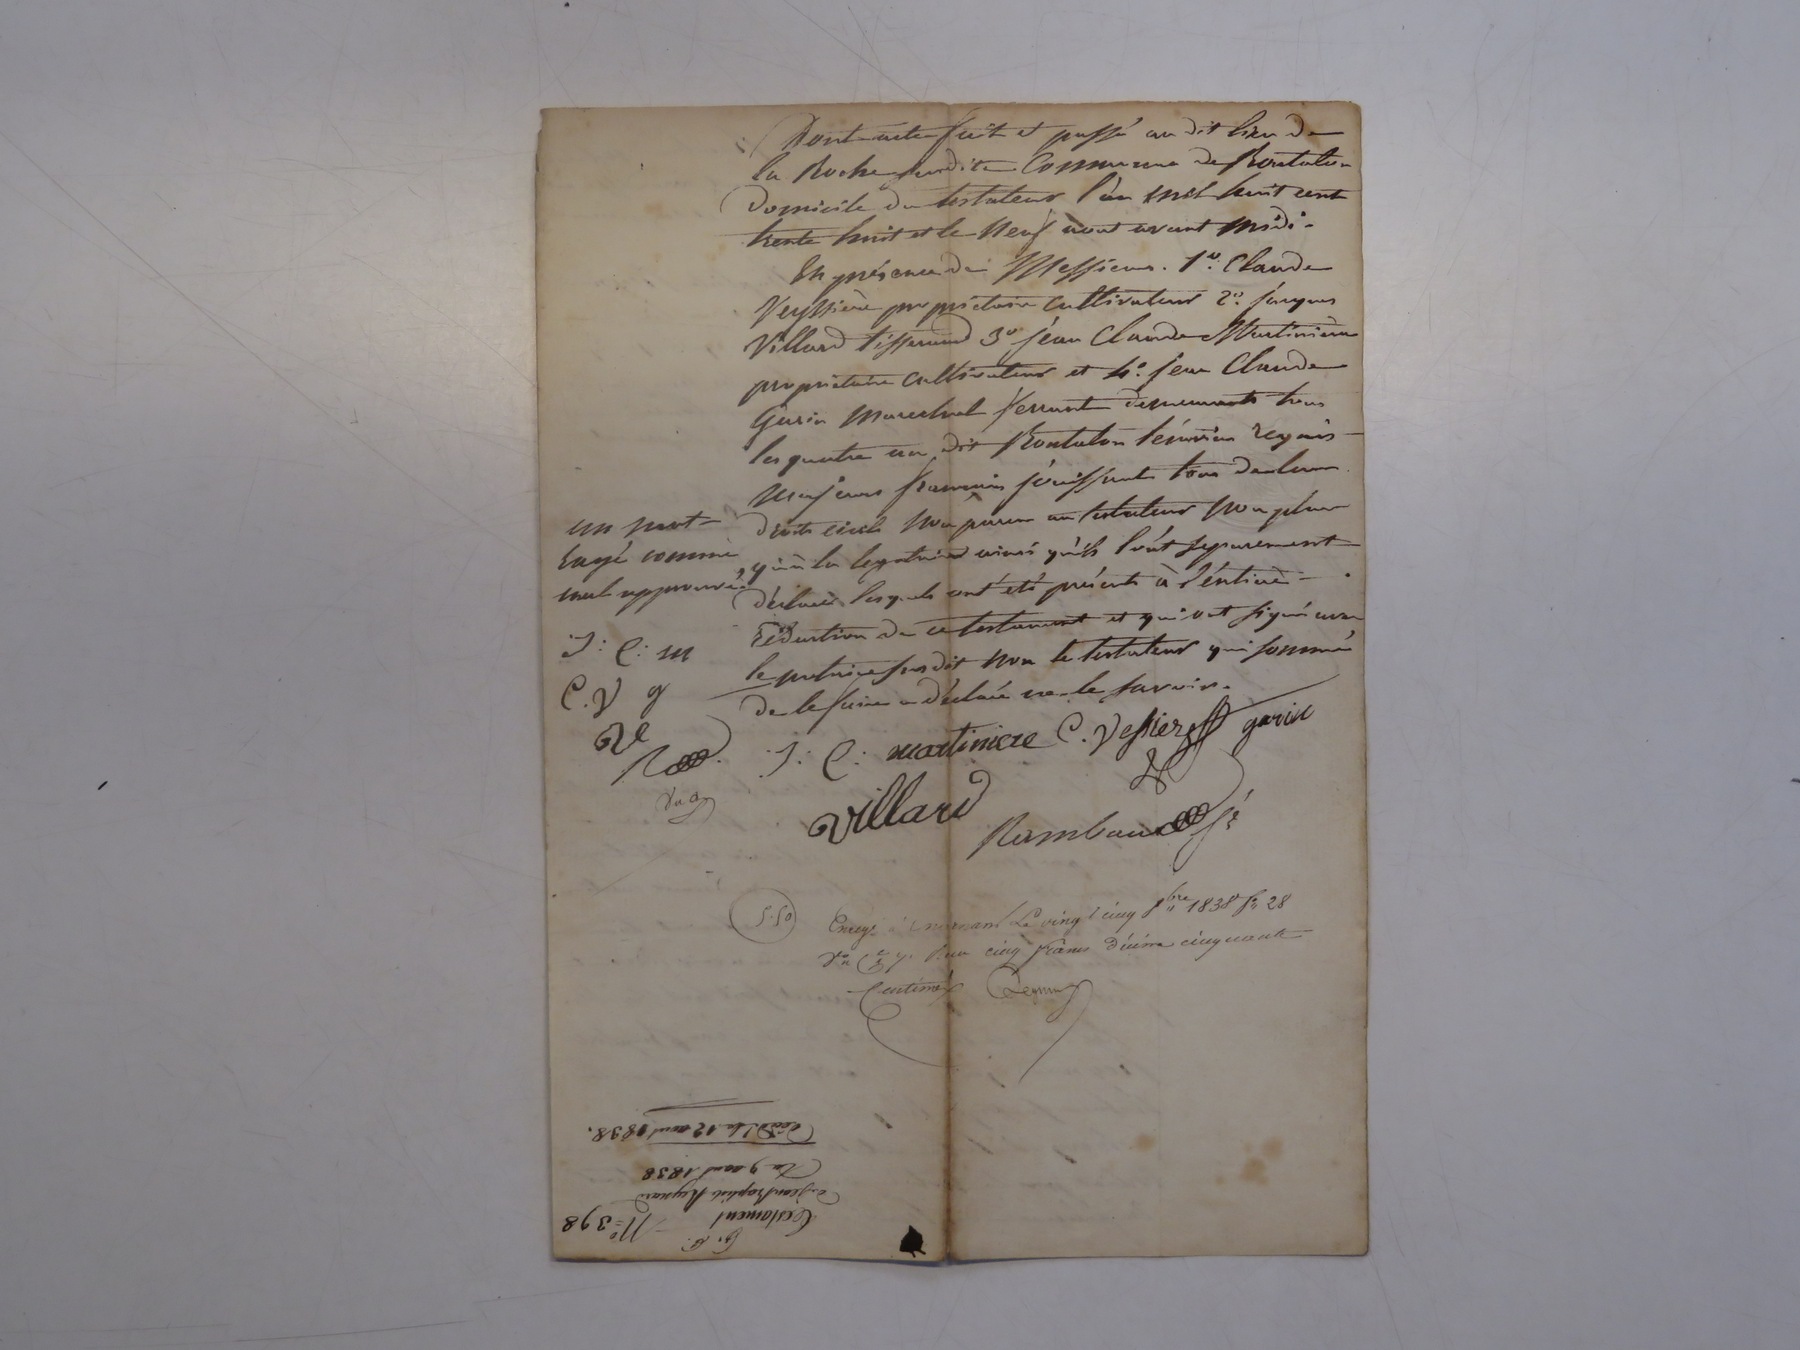 Dont acte fait et passé au dit lieu de
la Roche susdite Commune de Rontalon
domicile du testateur l'an mil huit cent
trente huit et le neuf aout avant midi.
En présence de Messieurs. 1º. Claude
Veyssière propriétaire cultivateur 2º. jacques
Villard tisserand 3º jean Claude Martinière
propriétaire cultivateur et 4º. jean Claude
Garin Marechal ferrant demeurants tous
les quatre au dit Rontalon témoins requis
Majeurs francais jouissants tous de leurs
droits civils non parens au testateur non plus
qu'à la légataire ainsi qu'ils l'ont separement
déclaré lesquels ont été présents à l'éntière
rédaction de ce testament et qui ont signé avec
le notaire susdit non le testateur qui sommé
de le faire a déclaré ne le savoir.
un mot
rayé comme
nul approuvé
J: C: m
C. V g
J: C: martiniere C. Vessiere garin
Villard
Rambaud
5.50
le vingt cinq 8bre 1838 fº 28
cinq francs décime cinquante
Centimes
Nº 398
Testament
de Jean Baptiste Reynard
Du 9 aout 1838
Décédé le 12 aout 1838.